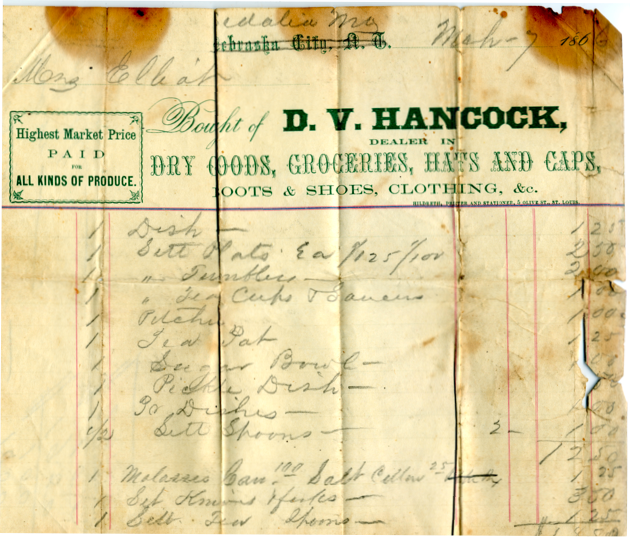 edalia Mo
ebraska City, N. T. Mch 7 186
Mrs Elliot
Bought of D. V. HANCOCK,
DEALER IN
DRY GOODS, GROCERIES, HATS AND CAPS,
BOOTS & SHOES, CLOTHING, &c.
Highest Market Price
PAID
FOR
ALL KINDS OF PRODUCE.
HILDRETH, PRINTER AND STATIONER, 5 OLIVE ST., ST. LOUIS.
1 Dish — 1 25
1 Sett Plats Ea 1/125 1/100 2 50
" Tumblers — 2 00
1 " Tea Cups & Saucers 1 00
1 Pitcher 1 00
1 Tea Pot 1 25
1 Sugar Bowl —
1 Pickle Dish —
1 Pr Dishes —
1/2 Sett Spoons — 2 — 1 00
12 50
1 Molasses Can 100 Salt Cellar 25 1 25
1 Set Knives & forks — 3 00
1 Sett Tea Spoons — 1 25